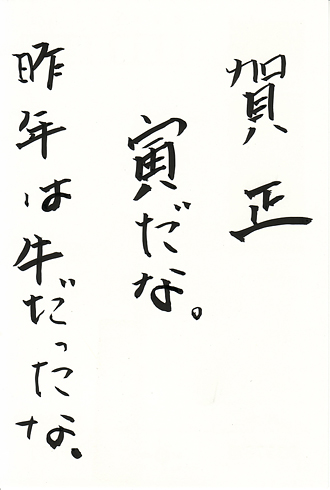 賀正
寅だな。
昨年は牛だったな。